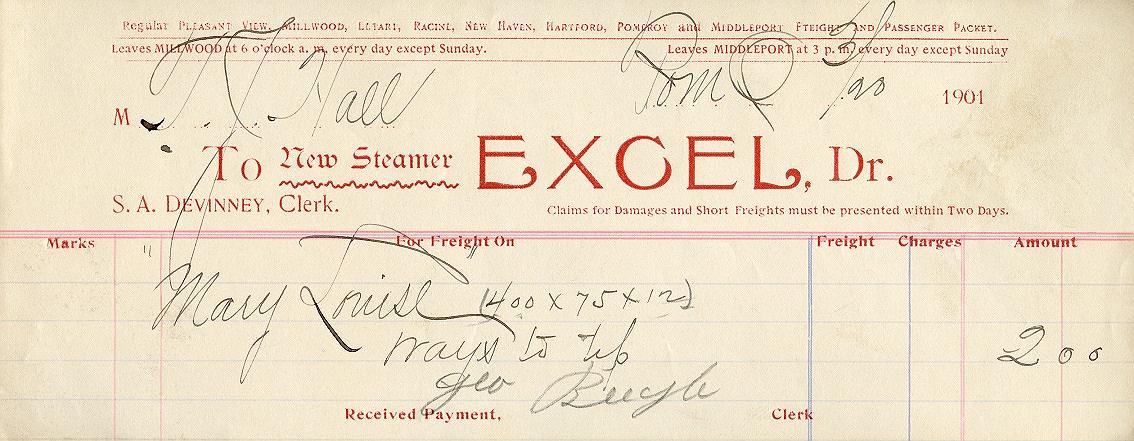 Regular Pleasant View, Millwood, Letart, Racine, New Haven, Hartford, Pomeroy and Middleport Freight and Passenger Packet.
Leaves MILLWOOD at 6 o'clock a. m. every day except Sunday. Leaves MIDDLEPORT at 3 p. m. every day except Sunday
Pom O 3/20 1901
M Hall
To New Steamer EXCEL, Dr.
S. A. DEVINNEY, Clerk. Claims for Damages and Short Freights must be presented within Two Days.
Marks For Freight On Freight Charges Amount
" "
Mary Louise (400 x 75 x 12)
ways to 2 00
Geo Beegle
Received Payment, Clerk